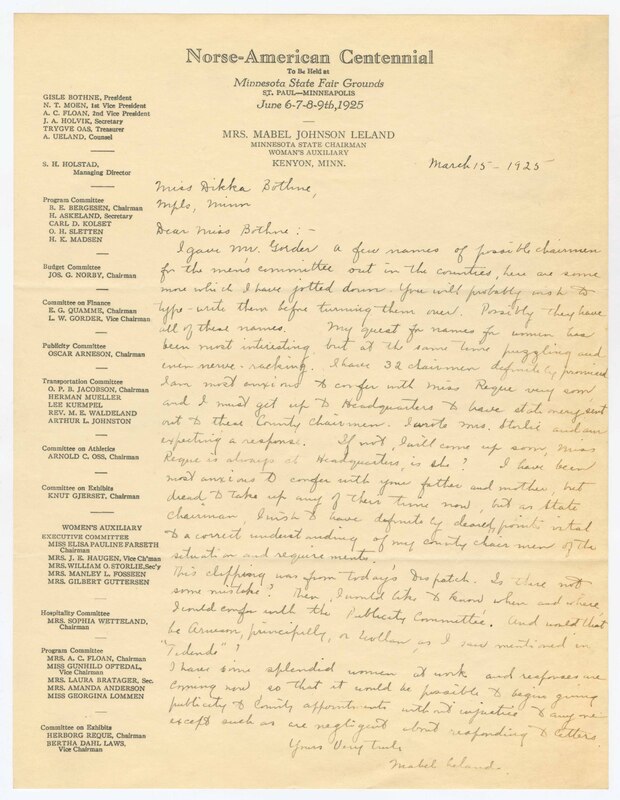 Norse-American Centennial
To Be Held at
Minnesota State Fair Grounds
ST. PAUL—MINNEAPOLIS
June 6-7-8-9th, 1925
MRS. MABEL JOHNSON LELAND
MINNESOTA STATE CHAIRMAN
WOMAN'S AUXILIARY
KENYON, MINN.
GISLE BOTHNE, President
N. T. MOEN, 1st Vice President
A. C. FLOAN, 2nd Vice President
J. A. HOLVIK, Secretary
TRYGVE OAS, Treasurer
A. UELAND, Counsel
S. H. HOLSTAD,
Managing Director
Program Committee
B. E. BERGESEN, Chairman
H. ASKELAND, Secretary
CARL D. KOLSET
O. H. SLETTEN
H. K. MADSEN
Budget Committee
JOS. G. NORBY, Chairman
Committee on Finance
E. G. QUAMME, Chairman
L. W. GORDER, Vice Chairman
Publicity Committee
OSCAR ARNESON, Chairman
Transportation Committee
O. P. B. JACOBSON, Chairman
HERMAN MUELLER
LEE KUEMPEL
REV. M. E. WALDELAND
ARTHUR L. JOHNSTON
Committee on Athletics
ARNOLD C. OSS, Chairman
Committee on Exhibits
KNUT GJERSET, Chairman
WOMEN'S AUXILIARY
EXECUTIVE COMMITTEE
MISS ELISA PAULINE FARSETH
Chairman
MRS. J. K. HAUGEN, Vice Ch'man
MRS. WILLIAM O. STORLIE, Sec'y
MRS. MANLEY L. FOSSEEN
MRS. GILBERT GUTTERSEN
Hospitality Committee
MRS. SOPHIA WETTELAND,
Chairman
Program Committee
MRS. A. C. FLOAN, Chairman
MISS GUNHILD OFTEDAL,
Vice Chairman
MRS. LAURA BRATAGER, Sec.
MRS. AMANDA ANDERSON
MISS GEORGINA LOMMEN
Committee on Exhibits
HERBORG REQUE, Chairman
BERTHA DAHL LAWS,
Vice Chairman
March 15 - 1925
Miss Dikka Bothne,
Mpls, Minn
Dear Miss Bothne: -
I gave Mr. Gorder a few names of possible chairmen
for the men's committee out in the counties, here are some
more which I have jotted down. You will probably wish to
type-write them before turning them over. Possibly they have
all of these names. My quest for names for women has
been most interesting but at the same time puzzling and
even nerve-racking. I have 32 chairmen definitely promised
I am most anxious to confer with Miss Reque very soon,
and I must get up to Headquarters to have stationery sent
out to these County Chairmen. I wrote Mrs. Storlie and am
expecting a response. If not, I will come up soon, Miss
Reque is always at Headquarters, is she? I have been
most anxious to confer with your father and mother, but
dread to take up any of their time now, but as State
Chairman, I wish to have definitely clearly points vital
to a correct understanding of my county chairmen of the
situation and requirements.
This clipping was from today's Dispatch. Is there not
some mistake? Then, I would like to know when and where
I would confer with the Publicity Committee. And would that
be Arneson, principally, or as I saw mentioned in
"Tidende"?
I have some splendid women at work and responses are
coming now so that it would be possible to begin giving
publicity to County appointments without injustice to any one
except such as are negligent about responding to letters.
Yours Very truly
Mabel Leland.